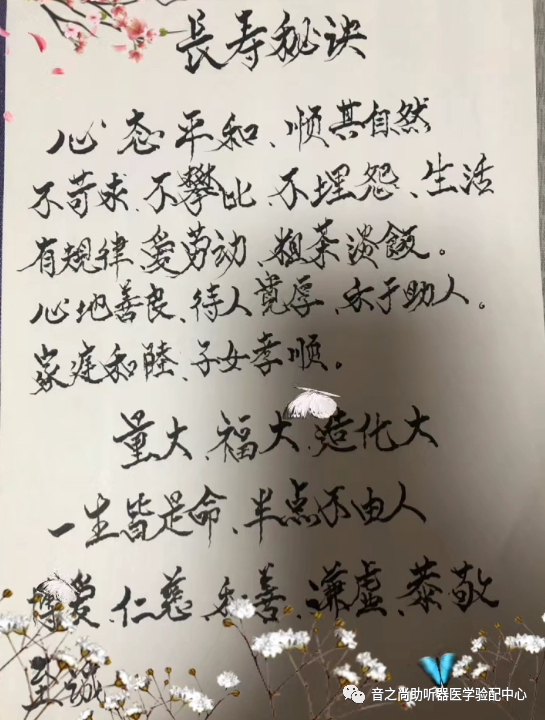 長寿秘诀
心态平和、顺其自然
不苛求、不攀比、不埋怨、生活
有规律、爱劳动、粗茶淡飯。
心地善良、待人寛厚、永于助人。
家庭和睦、子女孝順。
量大、福大、造化大
一生皆是命、半点不由人
博爱、仁慈、和善、谦虚、恭敬
至诚
音之尚助听器医学验配中心